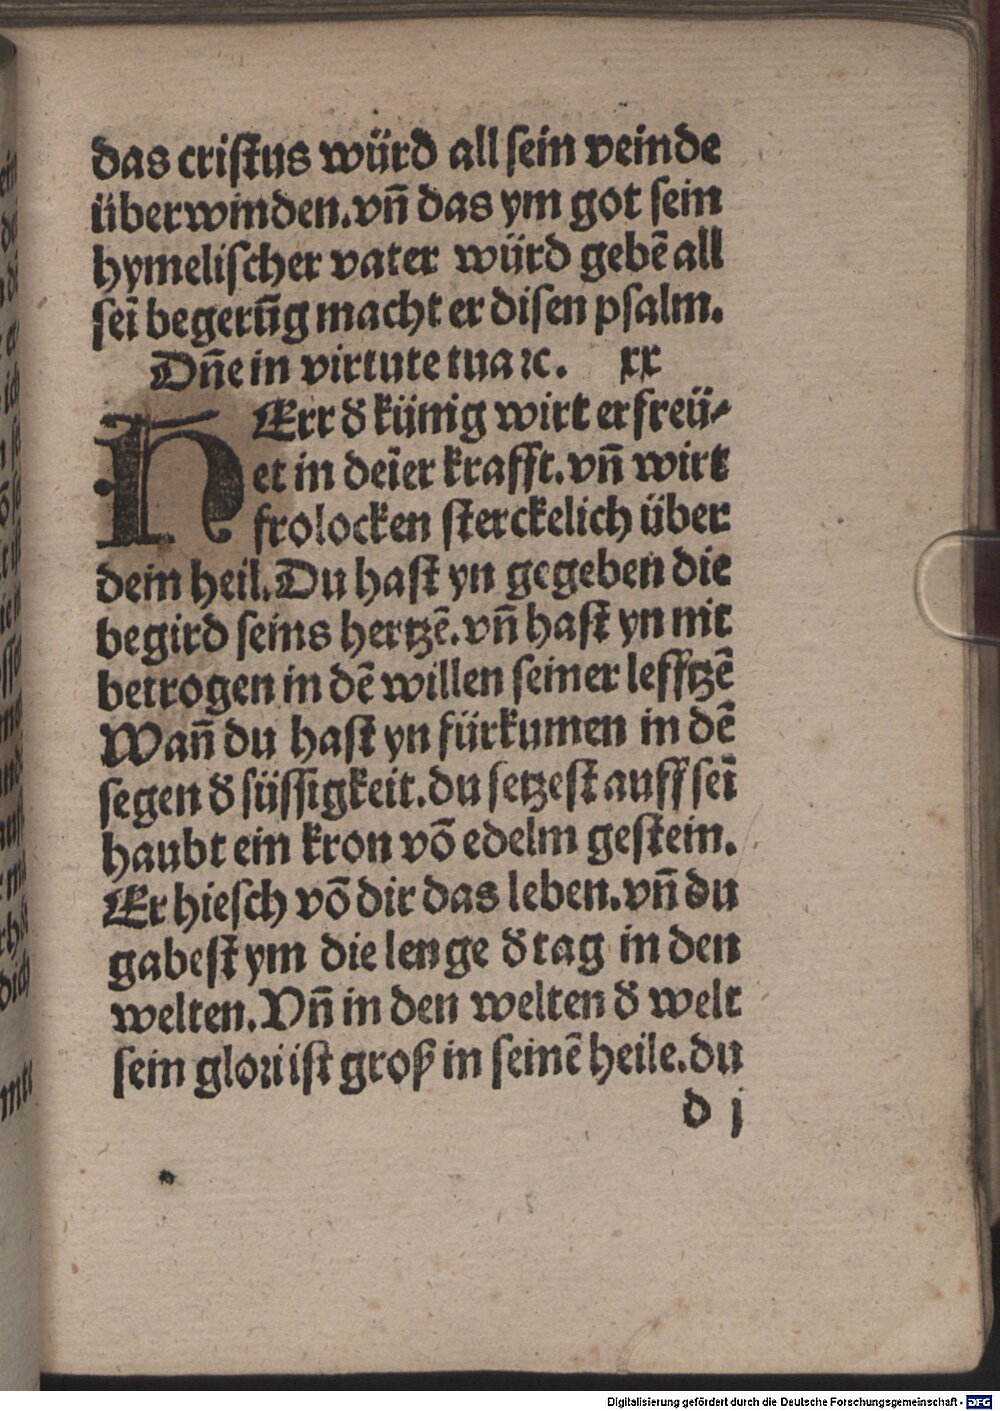 das cristus würd all sein veinde
überwinden.vñ das ym got sein
hymelischer vater würd gebē all
seī begerūg macht er disen psalm.
Dñe in virtute tua ⁊c. xx
HErr đ künig wirt erfreü⸗
et in deīer krafft.vñ wirt
frolocken sterckelich über
dein heil.Du hast yn gegeben die
begird seins hertzē.vñ hast yn nit
betrogen in dē willen seiner lefftzē
Wañ du hast yn fürkumen in dē
segen đ süssigkeit.du setzest auff seī
haubt ein kron vō edelm gestein.
Er hiesch vō dir das leben.vñ du
gabest ym die lenge đ tag in den
welten.Vñ in den welten đ welt
sein glori ist groß in seinē heile.du
d j
Digitalisierung gefördert durch die Deutsche Forschungsgemeinschaft - DFG